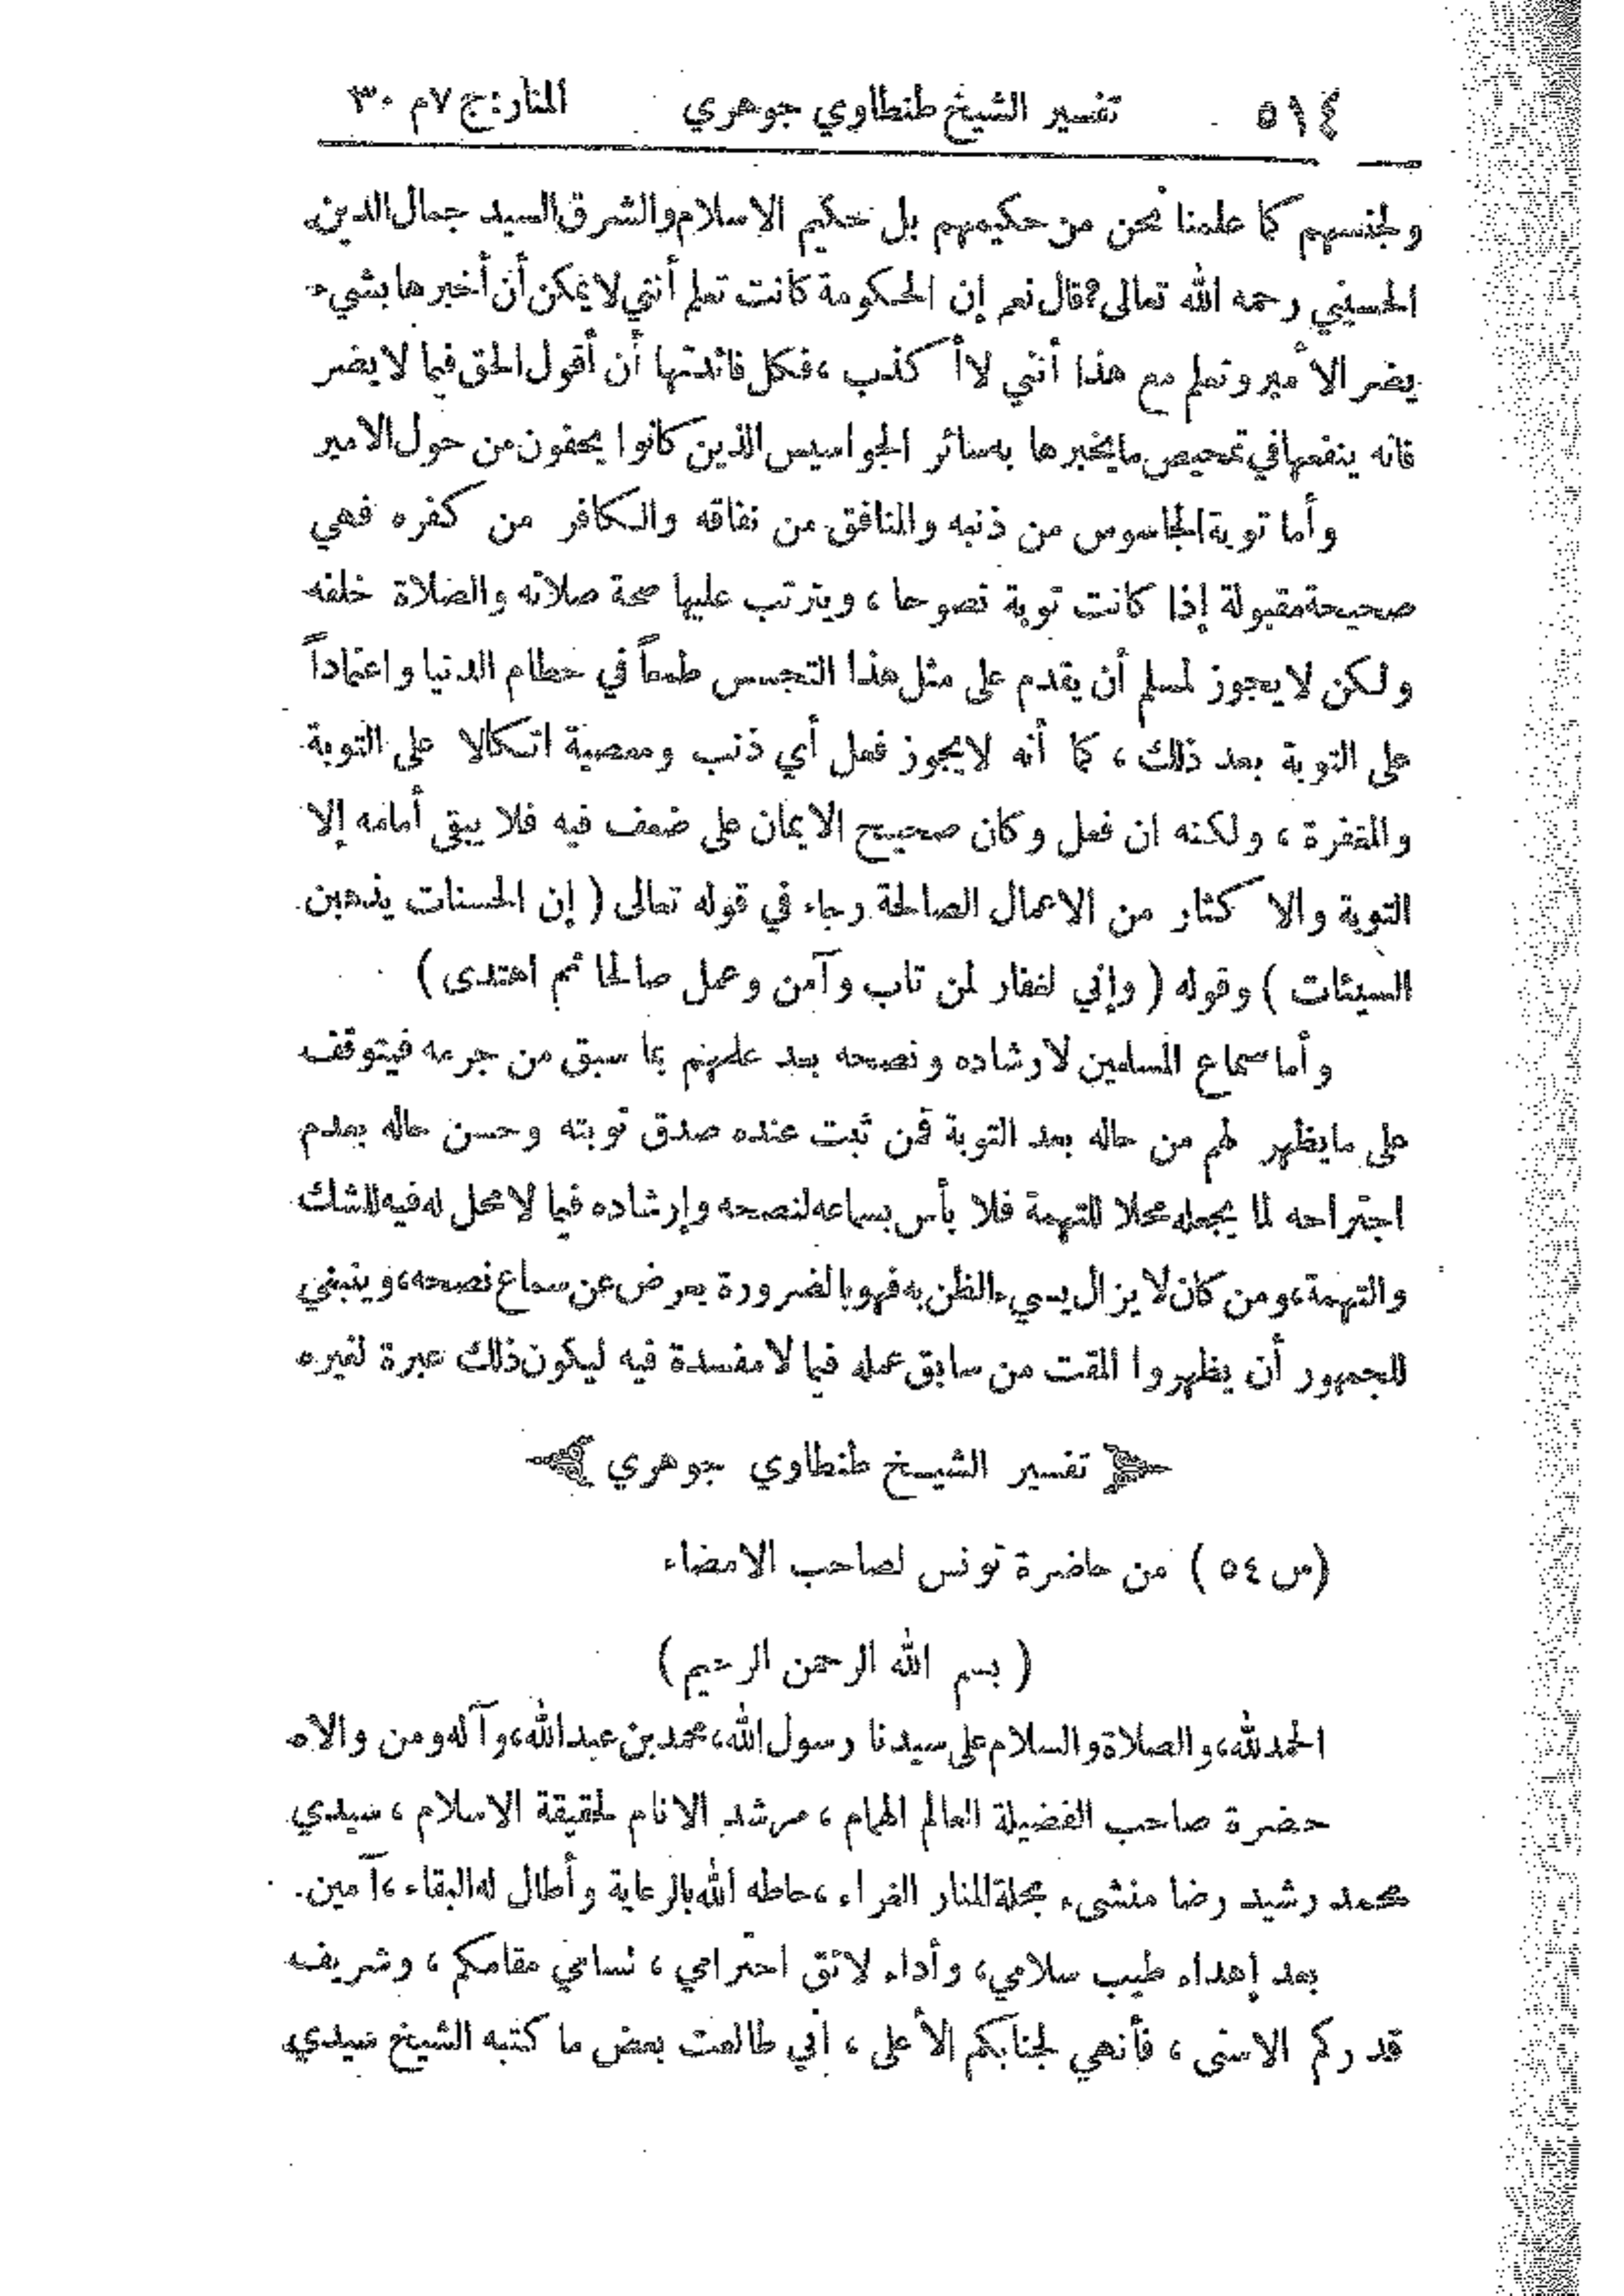 ٥١٤ تفسير الشيخ طنطاوي جوهري المنار: ج ٧ م ٣٠
ولجنسهم كما علمنا نحن من حكيمهم بل حكيم الاسلام والشرق السيد جمال الدين
الحسيني رحمه الله تعالى؟ قال نعم إن الحكومة كانت تعلم أنني لا يمكن أن أخبرها بشيء
يضر الأمير وتعلم مع هذا أنني لا أكذب ، فكل فائدتها أن أقول الحق فيما لا يضر
فانه ينفعها في تمحيص ما يخبرها به سائر الجواسيس الذين كانوا يحفون من حول الامير
وأما توبة الجاسوس من ذنبه والمنافق من نفاقه والكافر من كفره فهي
صحيحة مقبولة إذا كانت توبة نصوحا ، ويترتب عليها صحة صلاته والصلاة خلفه
ولكن لا يجوز لمسلم أن يقدم على مثل هذا التجسس طمعاً في حطام الدنيا واعتماداً
على التوبة بعد ذلك ، كما أنه لا يجوز فعل أي ذنب ومعصية اتكالا على التوبة
والمغفرة ، ولكنه ان فعل وكان صحيح الايمان على ضعف فيه فلا يبقى أمامه إلا
التوبة والاكثار من الاعمال الصالحة رجاء في قوله تعالى ( إن الحسنات يذهبن
السيئات ) وقوله ( وإني لغفار لمن تاب وآمن وعمل صالحا ثم اهتدى )
وأما سماع المسلمين لارشاده ونصحه بعد علمهم بما سبق من جرمه فيتوقف
على ما يظهر لهم من حاله بعد التوبة فمن ثبت عنده صدق توبته وحسن حاله بعدم
اجتراحه لما يجعله محلا للتهمة فلا بأس بسماعه لنصحه وإرشاده فيما لا محل له فيه للشك
والتهمة، ومن كان لا يزال يسيء الظن به فهو بالضرورة يعرض عن سماع نصحه، وينبغي
للجمهور أن يظهروا المقت من سابق عمله فيما لا مفسدة فيه ليكون ذلك عبرة لغيره
تفسير الشيخ طنطاوي جوهري
(س ٥٤ ) من حاضرة تونس لصاحب الامضاء
( بسم الله الرحمن الرحيم )
الحمد لله، والصلاة والسلام على سيدنا رسول الله، محمد بن عبد الله، وآله ومن والاه
حضرة صاحب الفضيلة العالم الهمام ، مرشد الانام لحقيقة الاسلام ، سيدي
محمد رشيد رضا منشيء مجلة المنار الغراء ، حاطه الله بالرعاية وأطال له البقاء ، آمين.
بعد إهداء طيب سلامي، وأداء لائق احترامي ، لسامي مقامكم ، وشريف
قدركم الاسنى ، فأنهي لجنابكم الأعلى ، اني طالعت بعض ما كتبه الشيخ سيدي